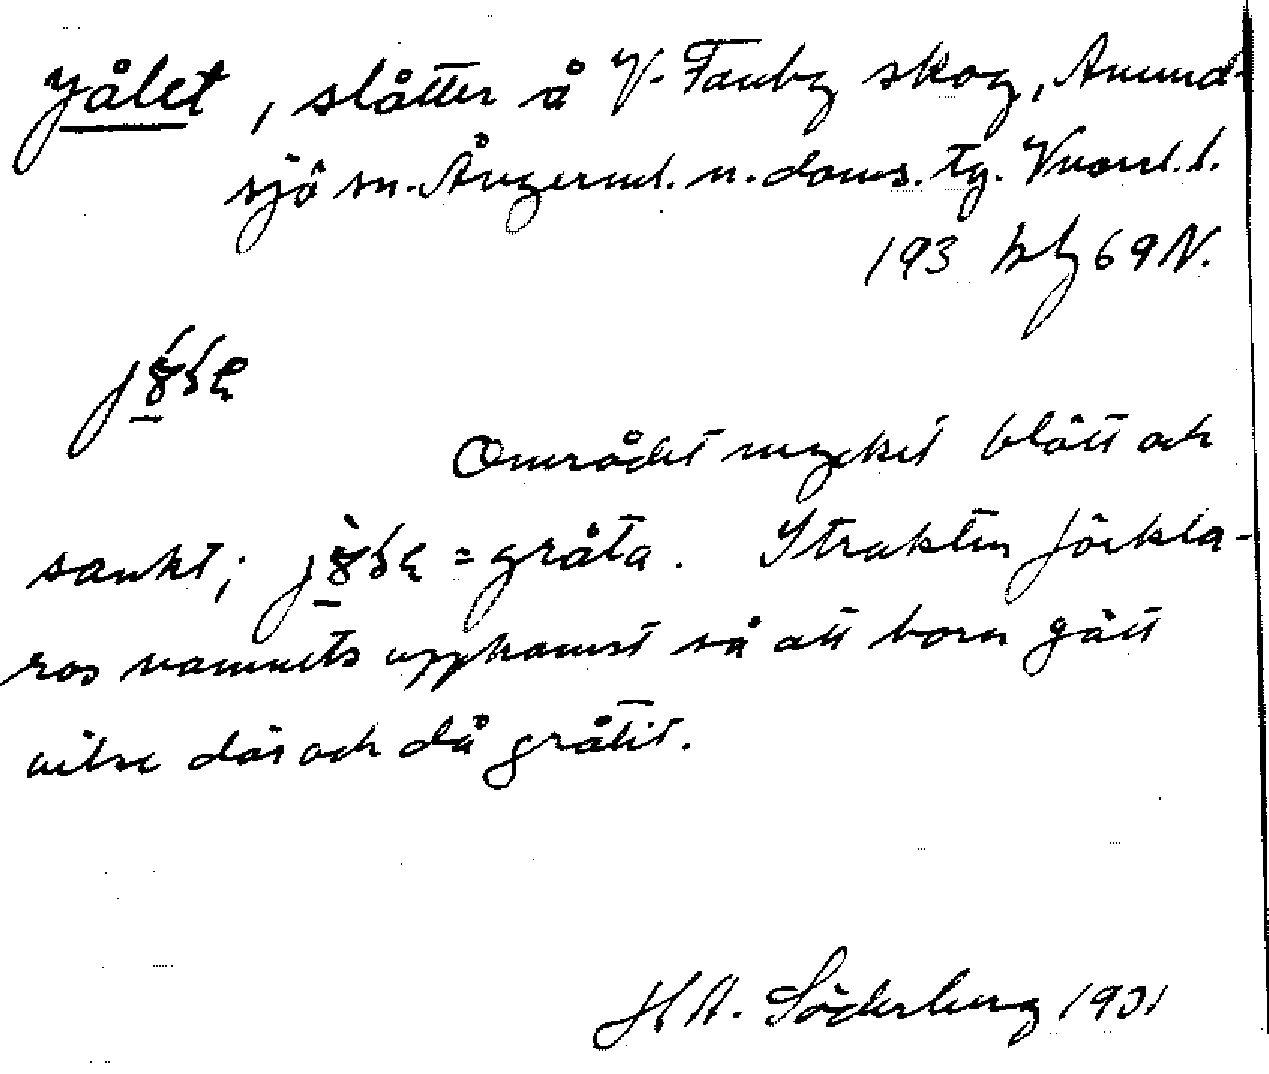 Jålet, slåtter å V. Tanby skog, Anund-
sjö sn. Ångerml. n. doms. tg. Vnorrl. l.
193 hbl 69 N.
Området mycket blött och
sankt; = gråta. I trakten förkla-
ras namnets uppkomst så att barn gått
vilse där och då gråtit.
H A. Söderberg 1931